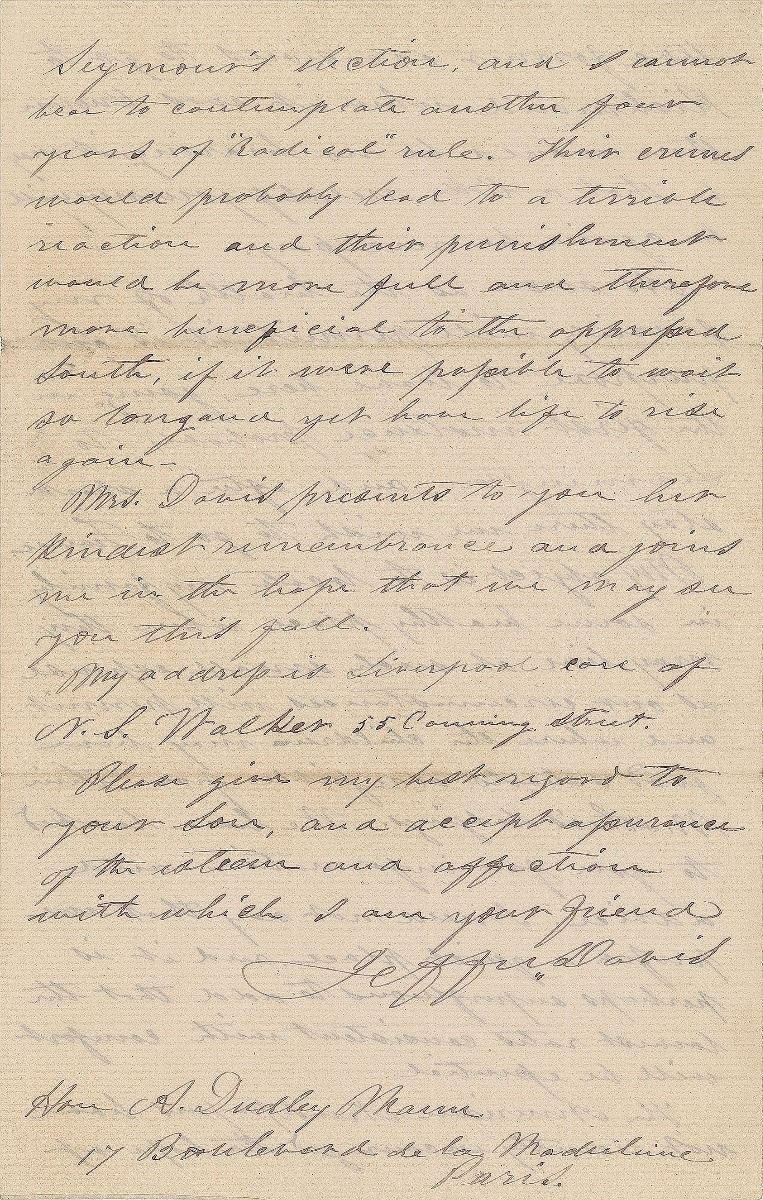 Seymour's election, and I cannot
bear to contemplate another four
years of "Radical" rule. Their crimes
would probably lead to a terrible
reaction and their punishment
would be more full and therefore
more beneficial to the oppressed
South, if it were possible to wait
so long and yet have life to rise
again—
Mrs. Davis presents to you her
kindest remembrance and joins
me in the hope that we may see
you this fall.
My address is Liverpool care of
N. S. Walker 55. Canning street.
Please give my best regard to
your Son, and accept assurance
of the esteem and affection
with which I am your friend
Jeffn. Davis
Hon A. Dudley Mann
17 Boulevard de la Madeleine
Paris.